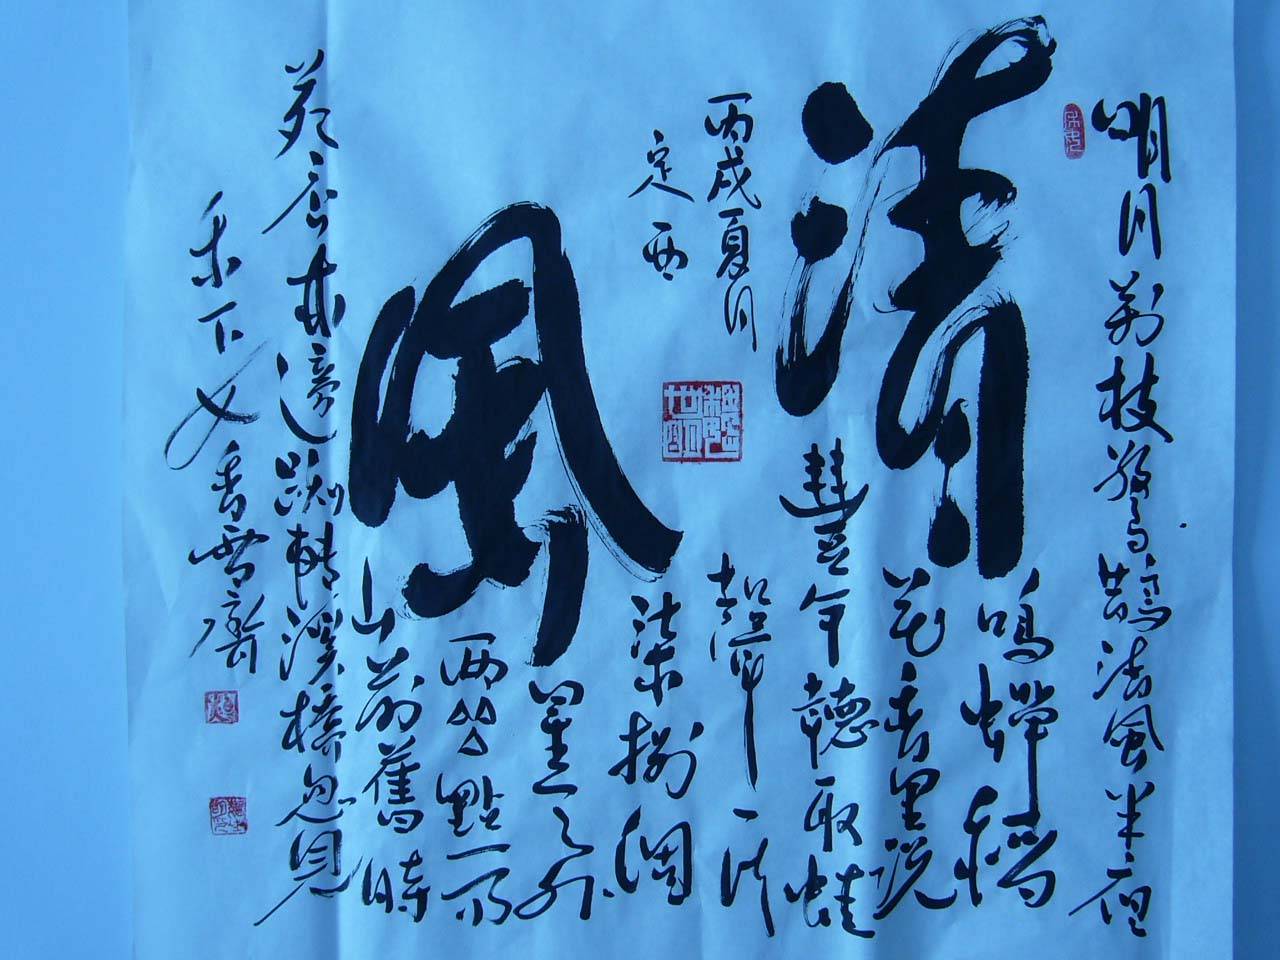 明月别枝驚鵲清風半夜
鳴蟬稻
花香里説
豐年聽取蛙
聲一片
柒捌個
星天外
兩三點雨
山前舊時
茅店林邊路轉溪橋忽見
清風
丙戌夏月
定西
香雪齋